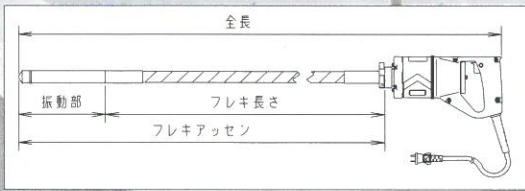 全長
振動部
フレキ長さ
フレキアッセン